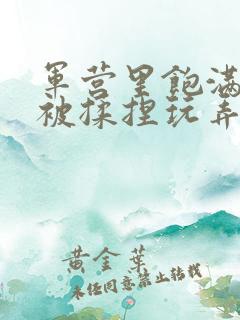 军营里饱满
被揉捏玩弄
黄金叶
未经同意禁止转载